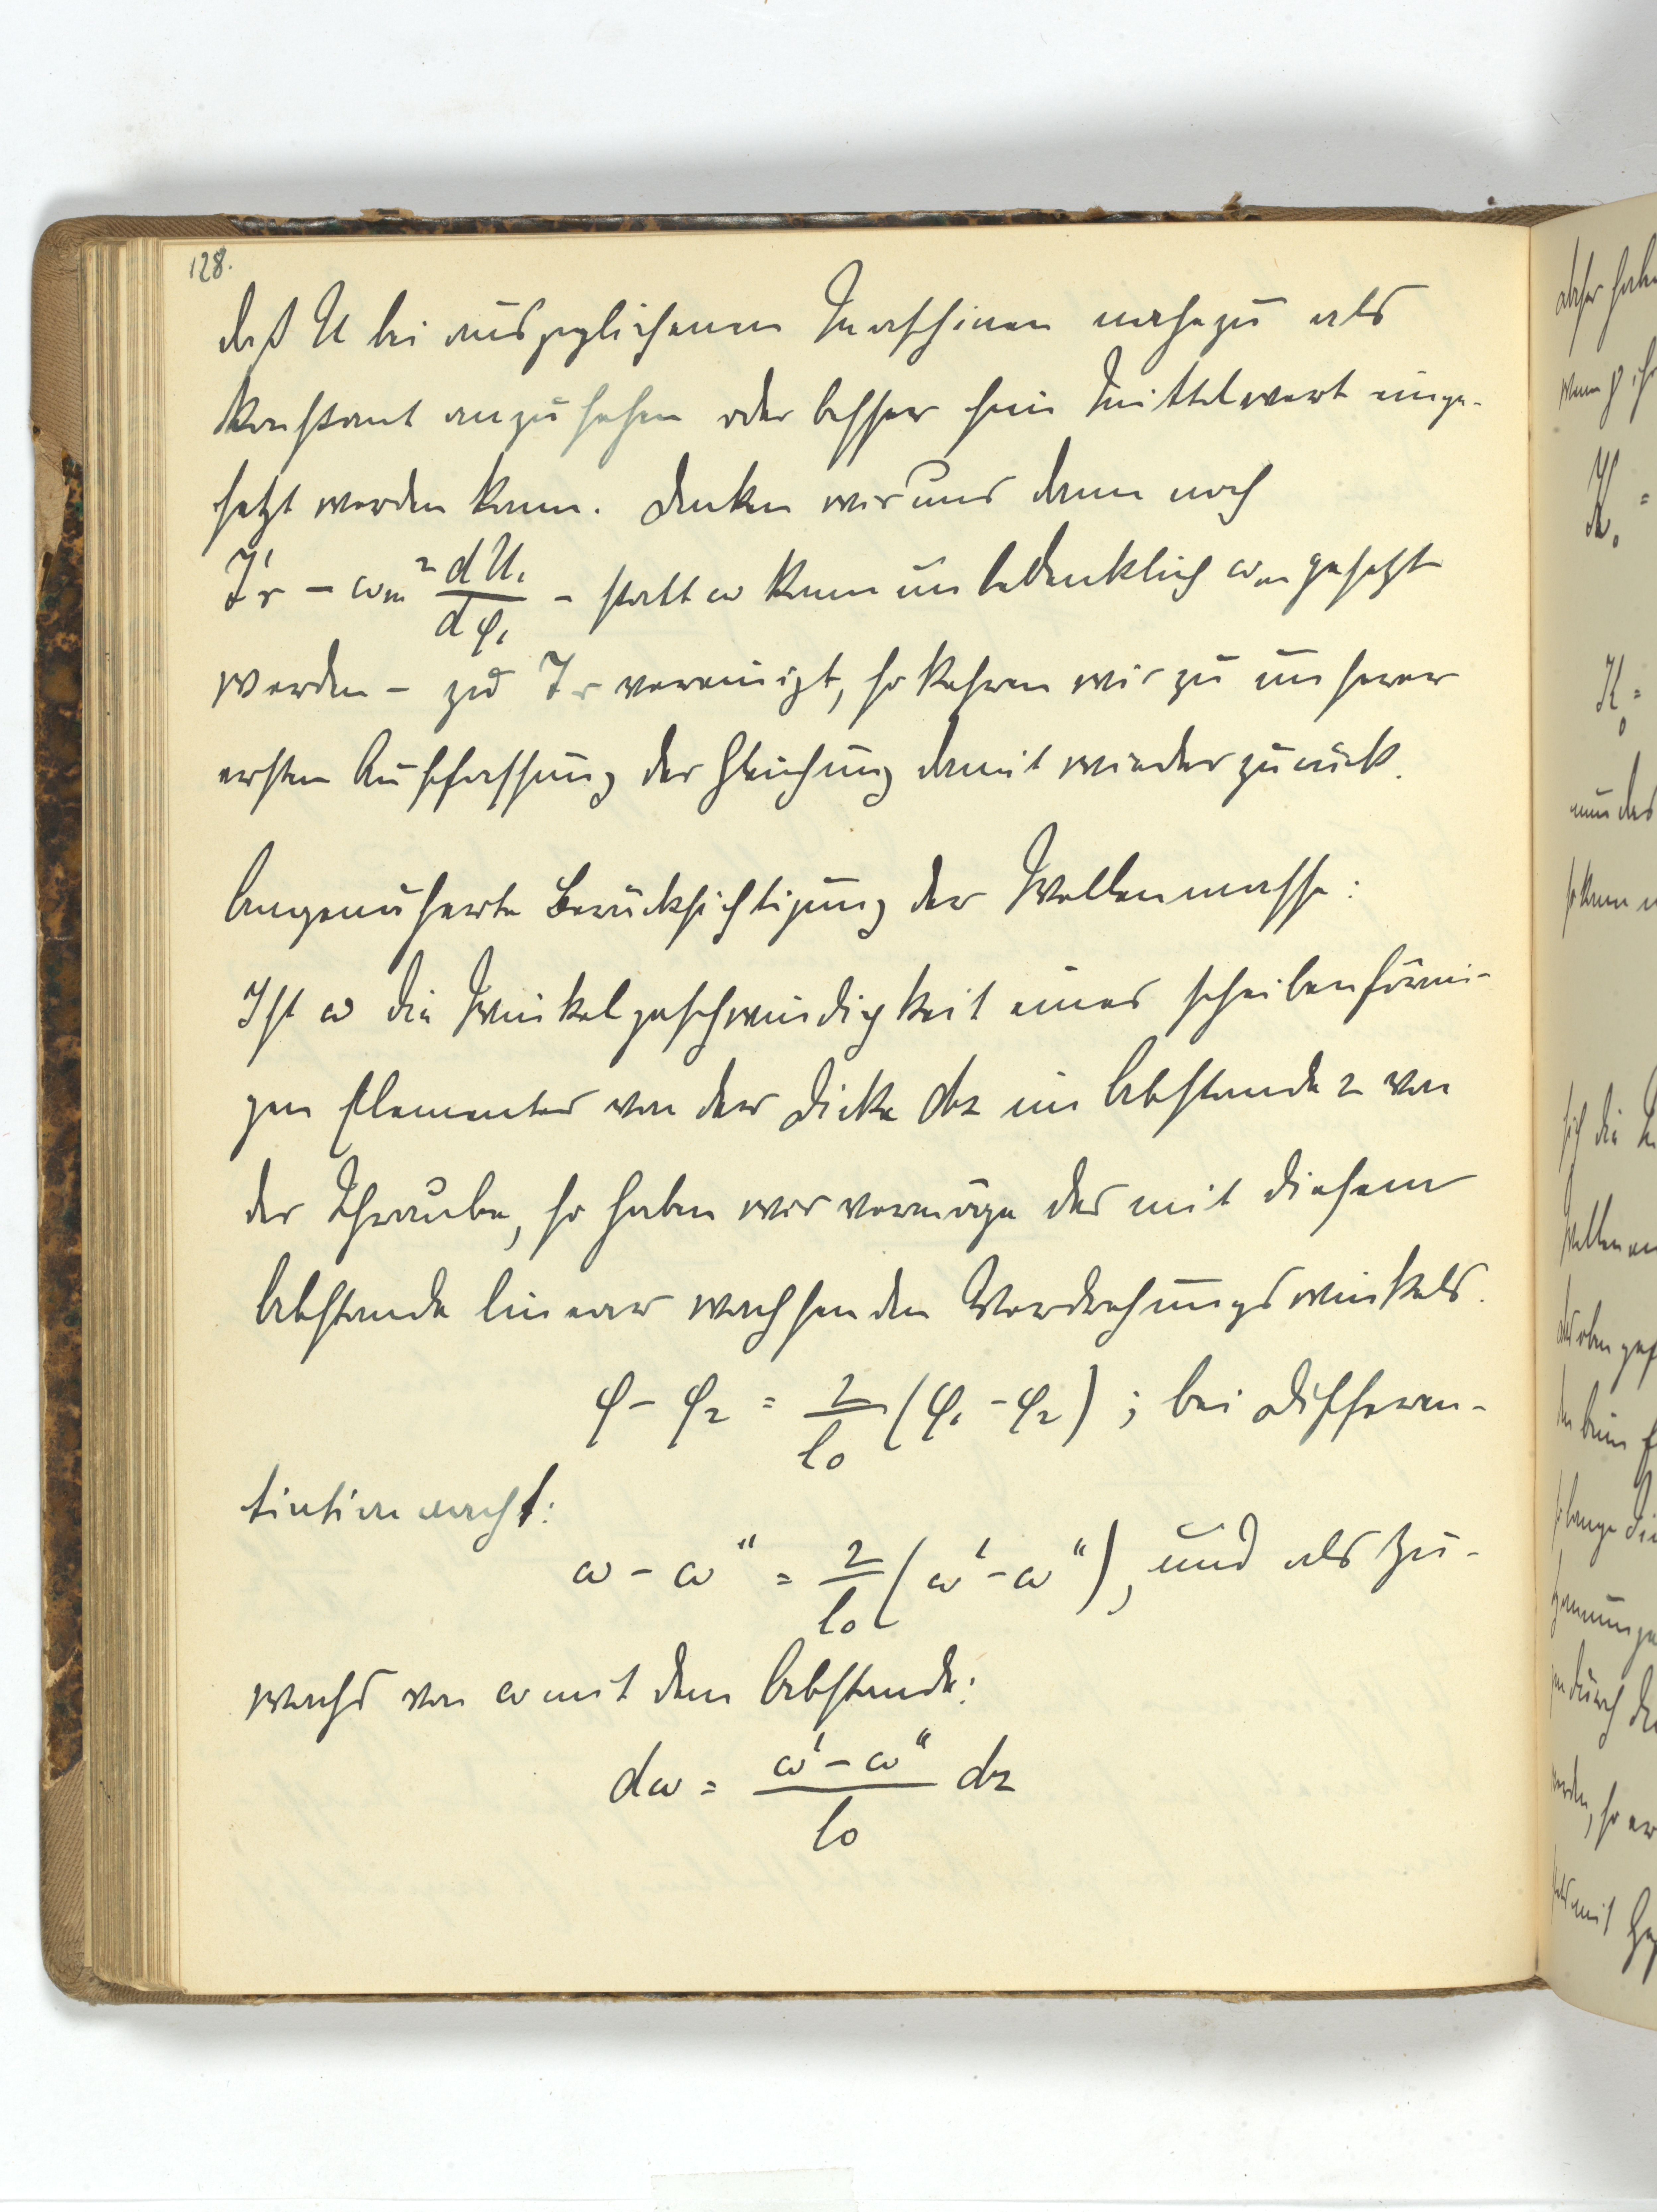 128.
daß U bei ausgeglichenen Maschinen nahezu als
konstant anzusehen oder besser sein Mittelwert einge-
setzt werden kann. Denken wir uns dann noch
J'r - ωm² dU₁/dφ₁ - statt ω kann unbedenklich ωm gesetzt
werden - zu Jr vereinigt, so kehren wir zu unserer
ersten Auffassung der Gleichung damit wieder zurück.
Angenäherte Berücksichtigung der Wellenmasse:
Ist ω die Winkelgeschwindigkeit eines scheibenförmi-
gen Elementes von der Dicke dz im Abstande z von
der Schraube, so haben wir vermöge des mit diesem
Abstande linear wachsenden Verdrehungswinkels.
φ - φ₂ = z/l₀ (φ₁ - φ₂) ; bei Differen-
tiation nach t:
ω - ω" = z/l₀ (ω' - ω"), und als Zu-
wachs von ω mit dem Abstande:
dω = ω' - ω"/l₀ dz